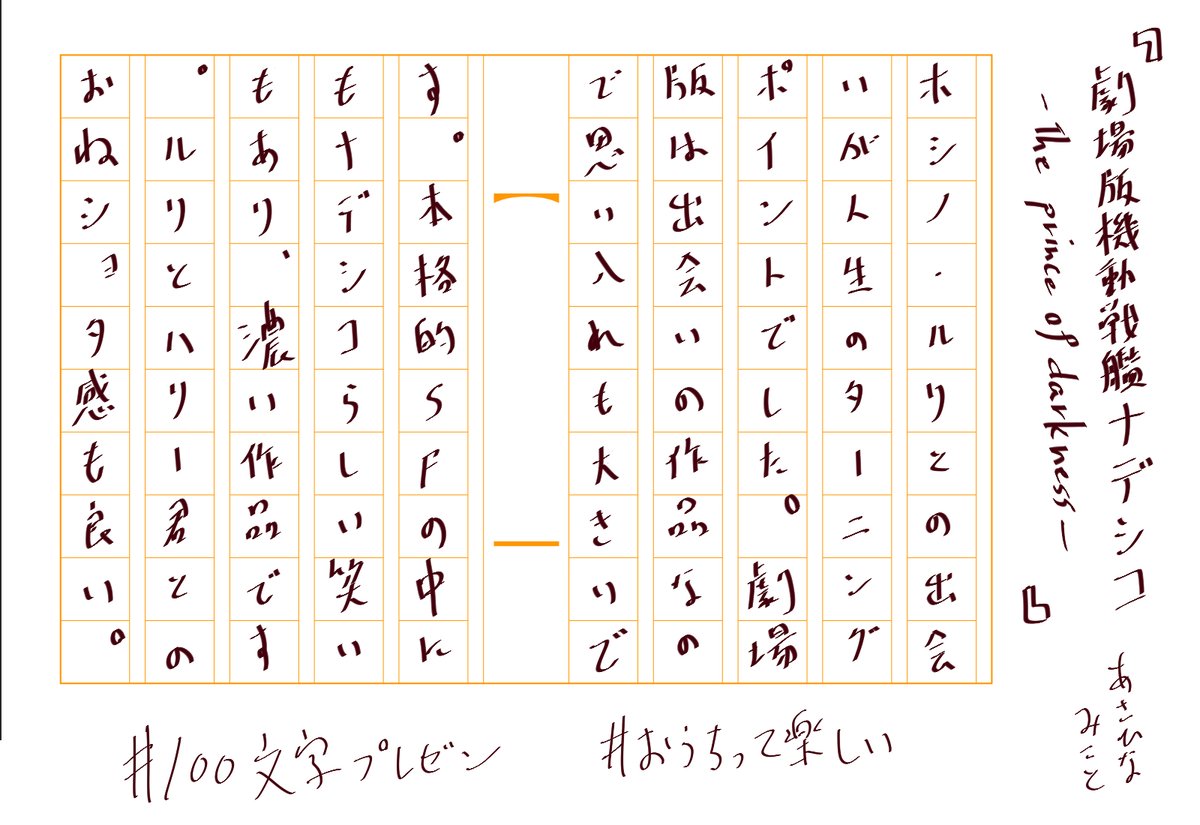 『劇場版機動戦艦ナデシコ
-The prince of darkness-』
あさひな
みこと
ホシノ・ルリとの出会
いが人生のターニング
ポイントでした。劇場
版は出会いの作品なの
で思い入れも大きいで
す。本格的SFの中に
もナデシコらしい笑い
もあり、濃い作品です
。ルリとハリー君との
おねショタ感も良い。
#おうちって楽しい
#100文字プレゼン